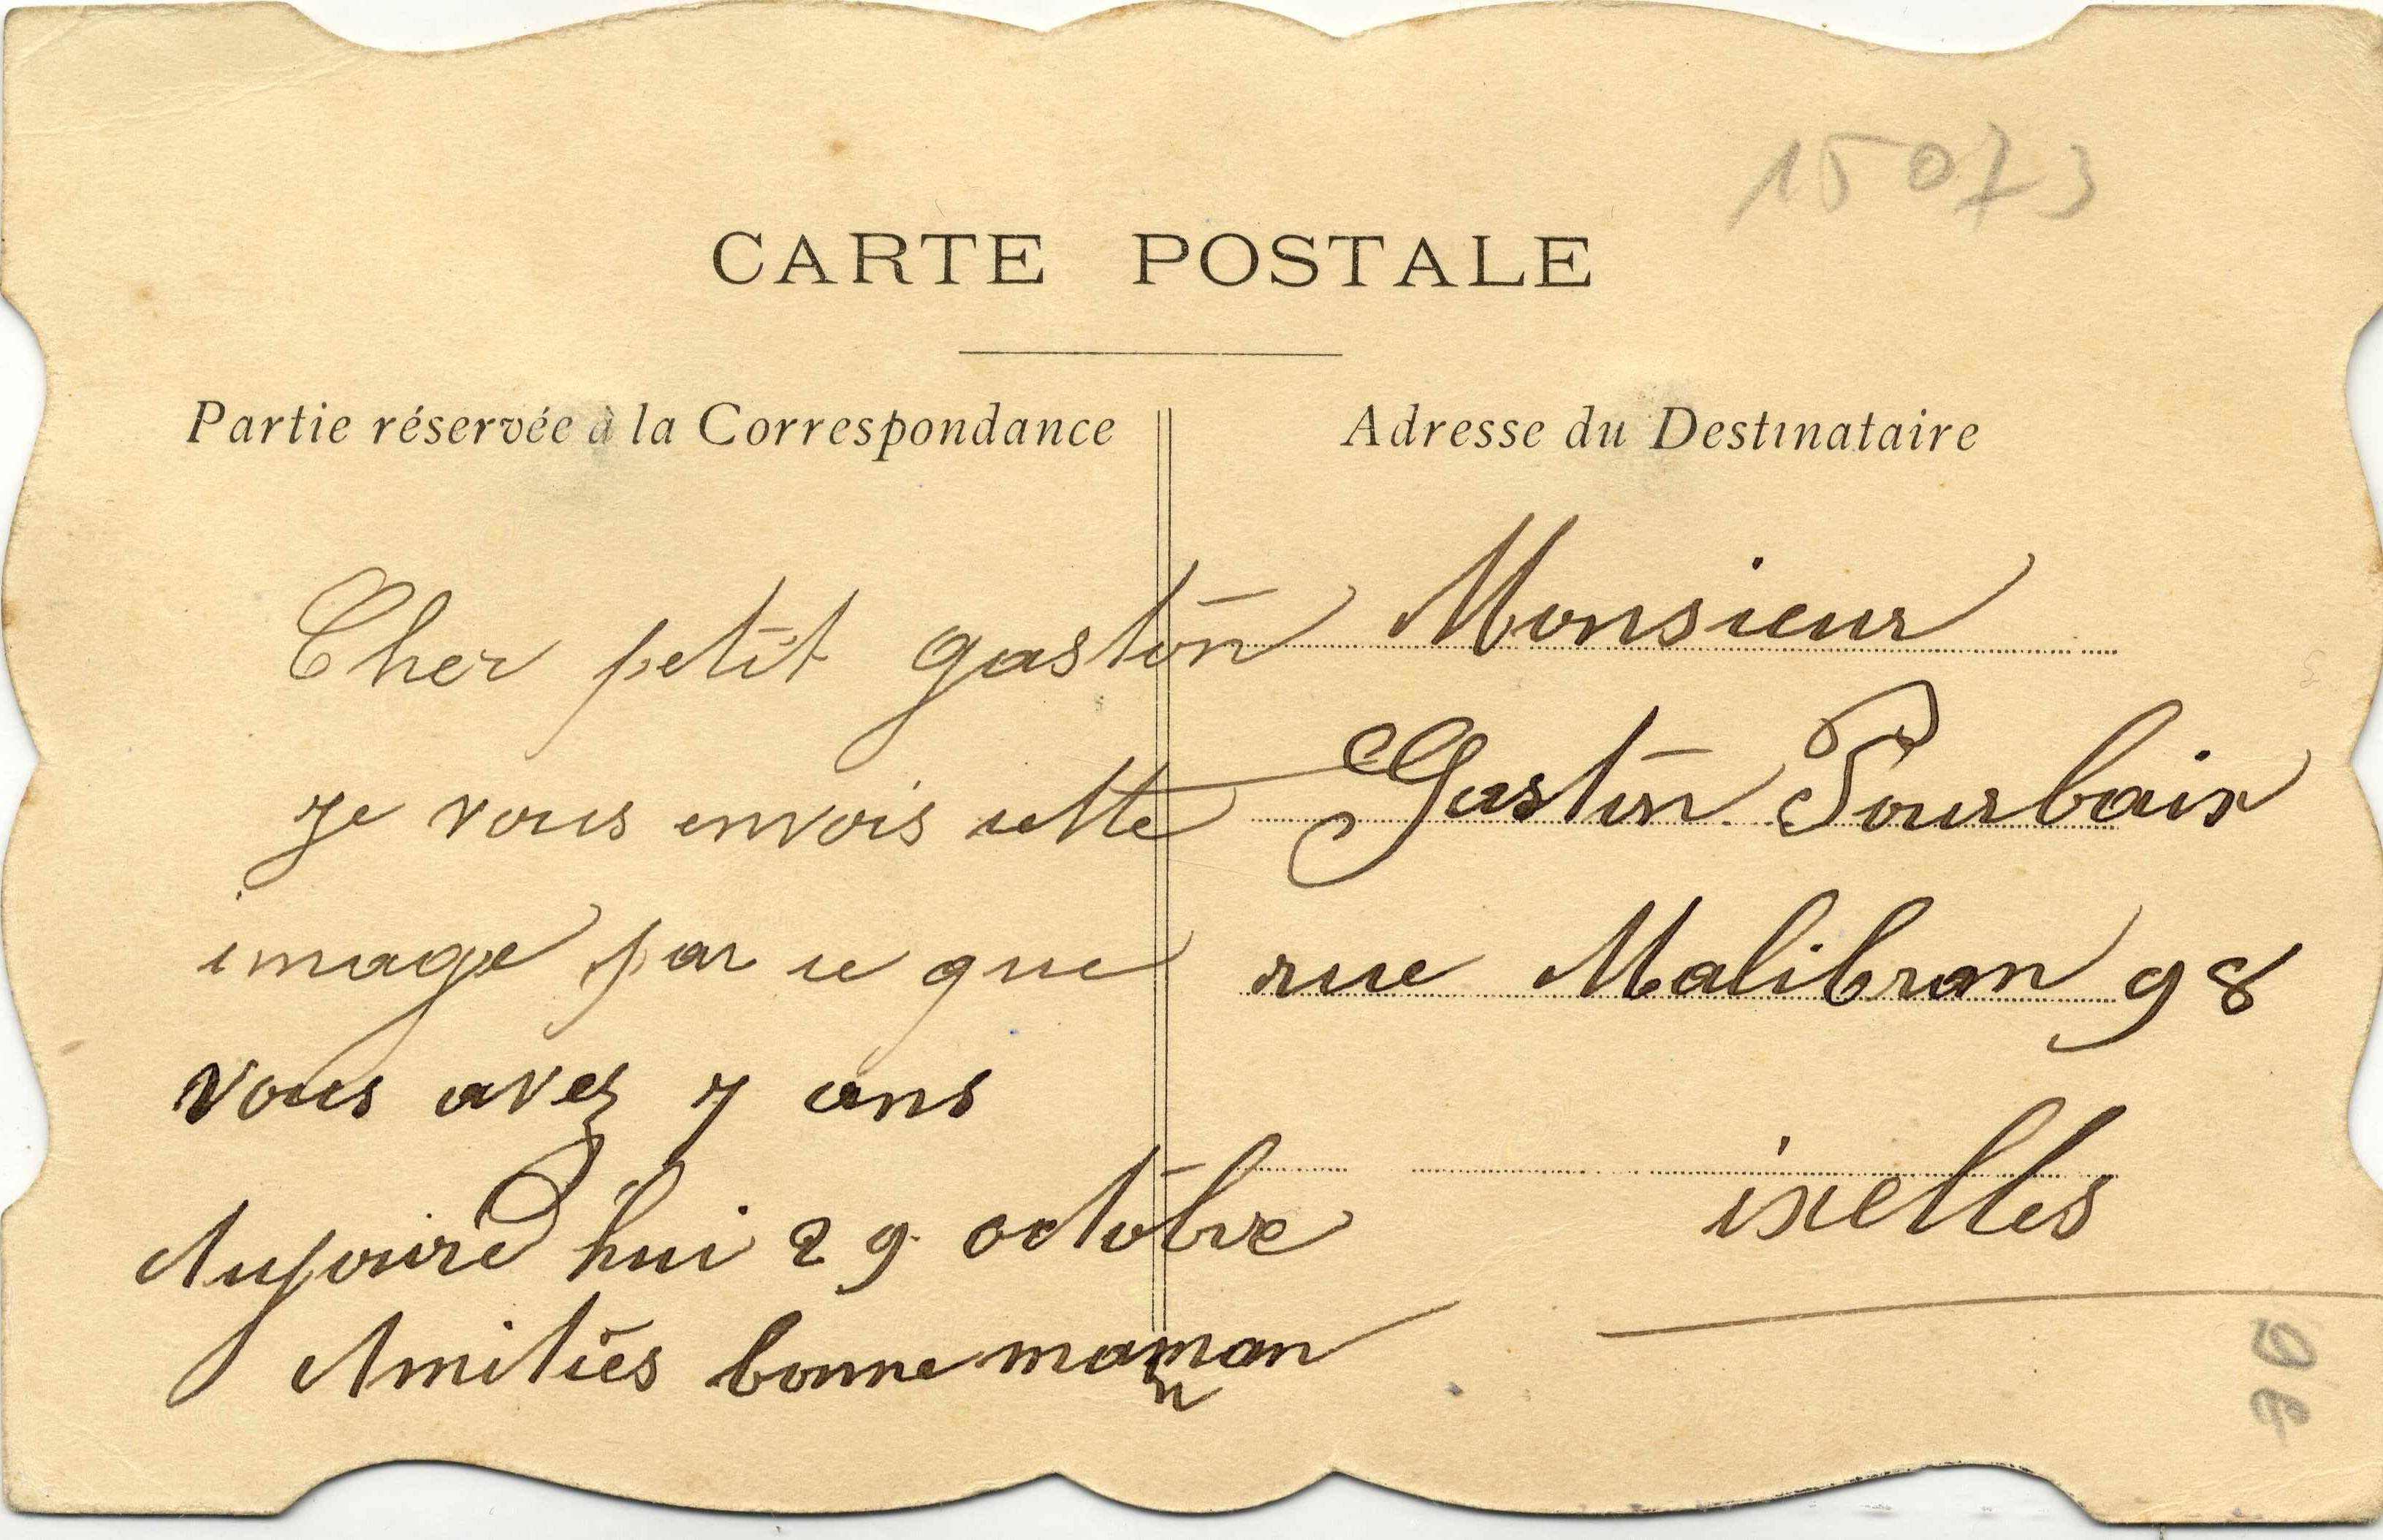 15073
CARTE POSTALE
Partie réservée à la Correspondance
Adresse du Destinataire
Cher petit gaston
je vous envois cette
image par ce que
vous avez 7 ans
Aujourd hui 29 octobre
Amitiés bonne maman
Monsieur
Gaston Pourbaix
rue Malibran 98
ixelles